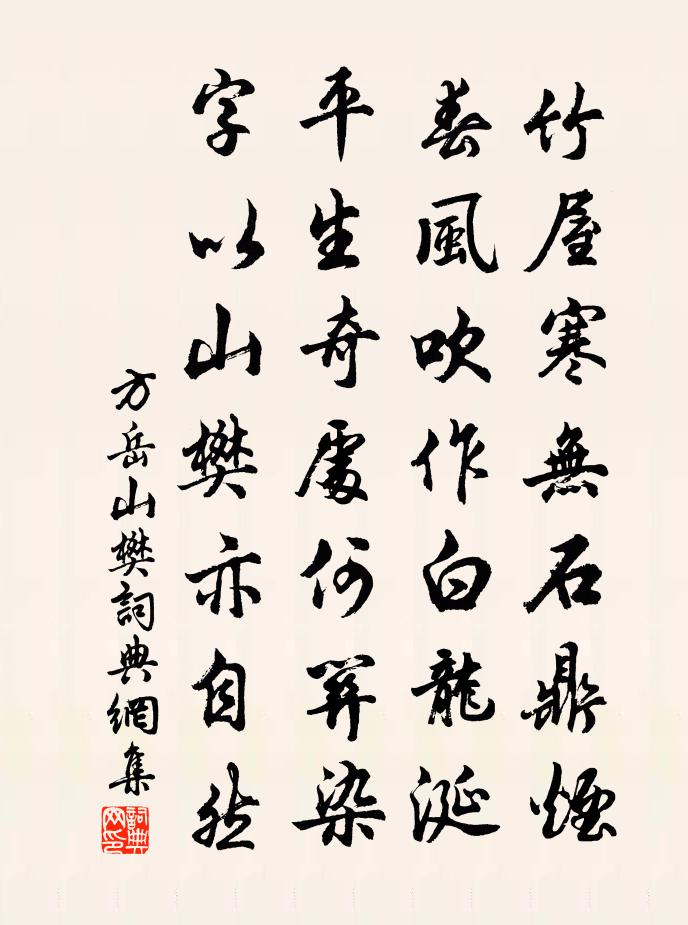 竹屋寒無石鼎煙
春風吹作白龍涎
平生奇處何關染
字以山樊亦自然
方岳山樊詞典網集
詞典網印